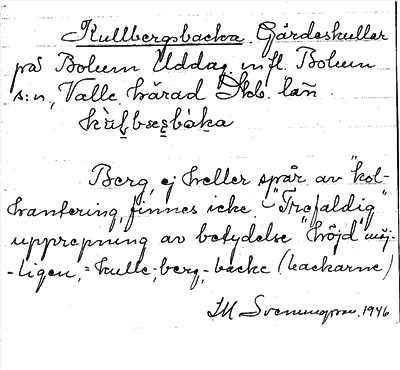 Kullbergsbacka. Gärdeskullar
på Bolum Uddag. m fl. Bolum
s:n, Valle härad Skb. län
Berg, ej heller spår av "kol-
hantering, finnes icke. "Trefaldig"
upprepning av betydelse "höjd" möj-
-ligen, = kulle, -berg, -backe (backarne)
1946